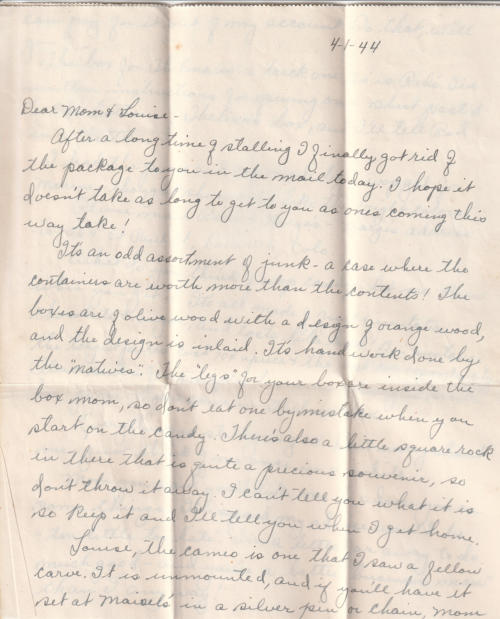 4-1-44
Dear Mom & Louise -
After a long time of stalling I finally got rid of
the package to you in the mail today. I hope it
doesn't take as long to get to you as ones coming this
way take!
It's an odd assortment of junk - a case where the
containers are worth more than the contents! The
boxes are of olive wood with a design of orange wood,
and the design is inlaid. It's hand work done by
the "natives". The "legs" for your box are inside the
box mom, so don't eat one by mistake when you
start on the candy. There's also a little square rock
in there that is quite a precious souvenir, so
don't throw it away. I can't tell you what it is
so keep it and I'll tell you when I get home.
Louise, the cameo is one that I saw a fellow
carve. It is unmounted, and if you'll have it
set at Maisels' in a silver pin or chain, mom